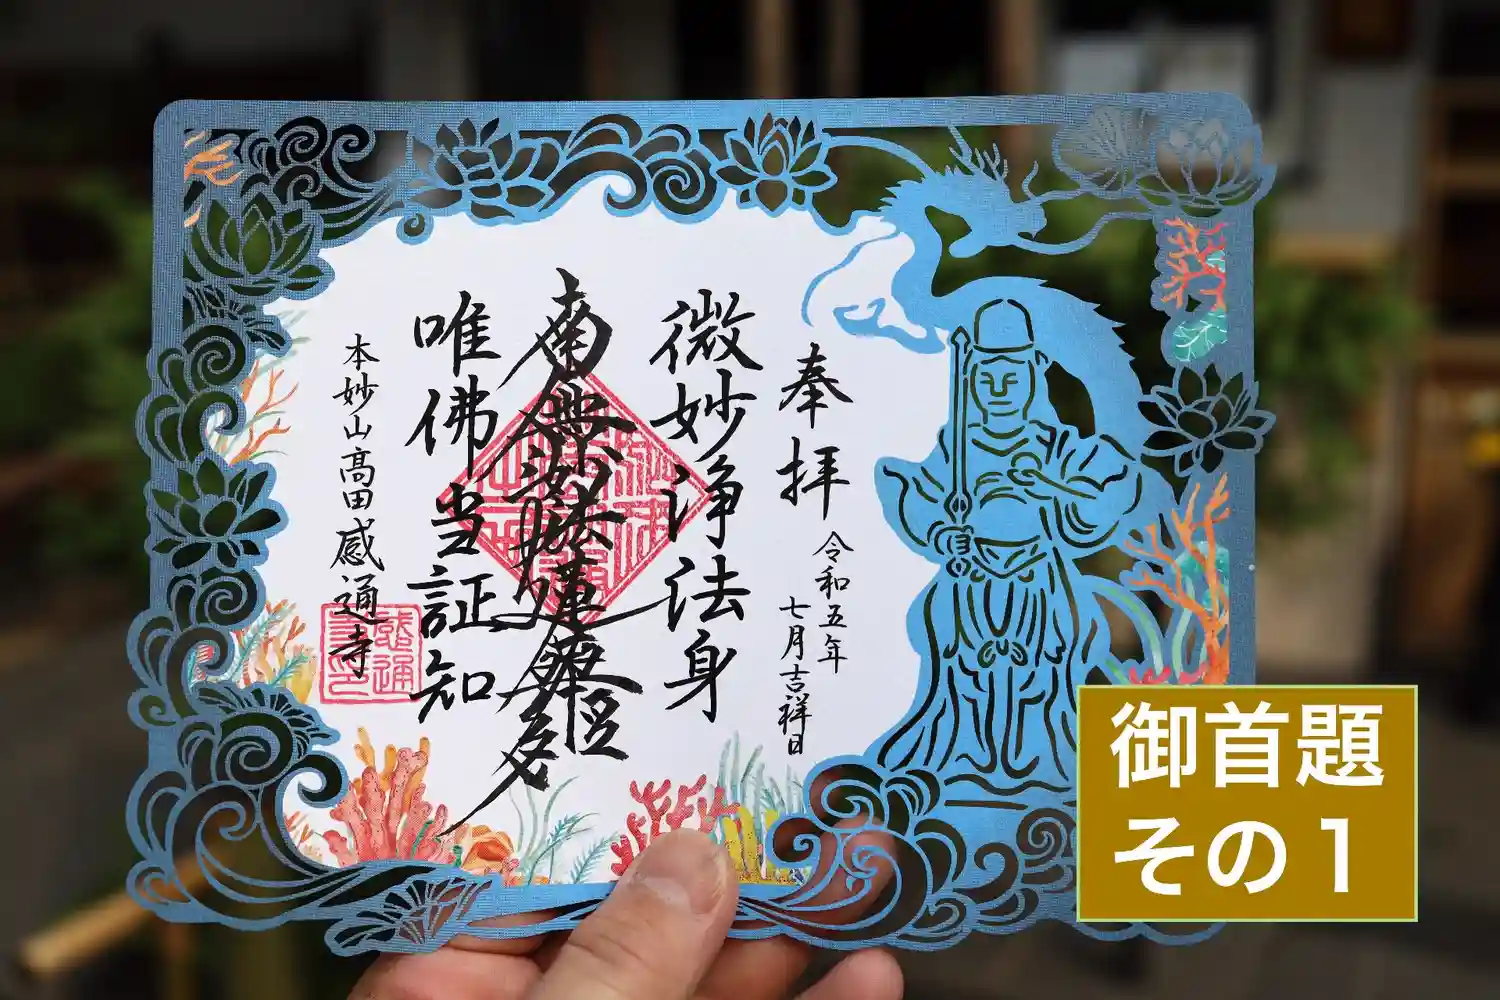 奉拝
令和五年
七月吉祥日
微妙浄法身
南無妙法蓮華経
唯佛当証知
本妙山高田感通寺
御首題
その１